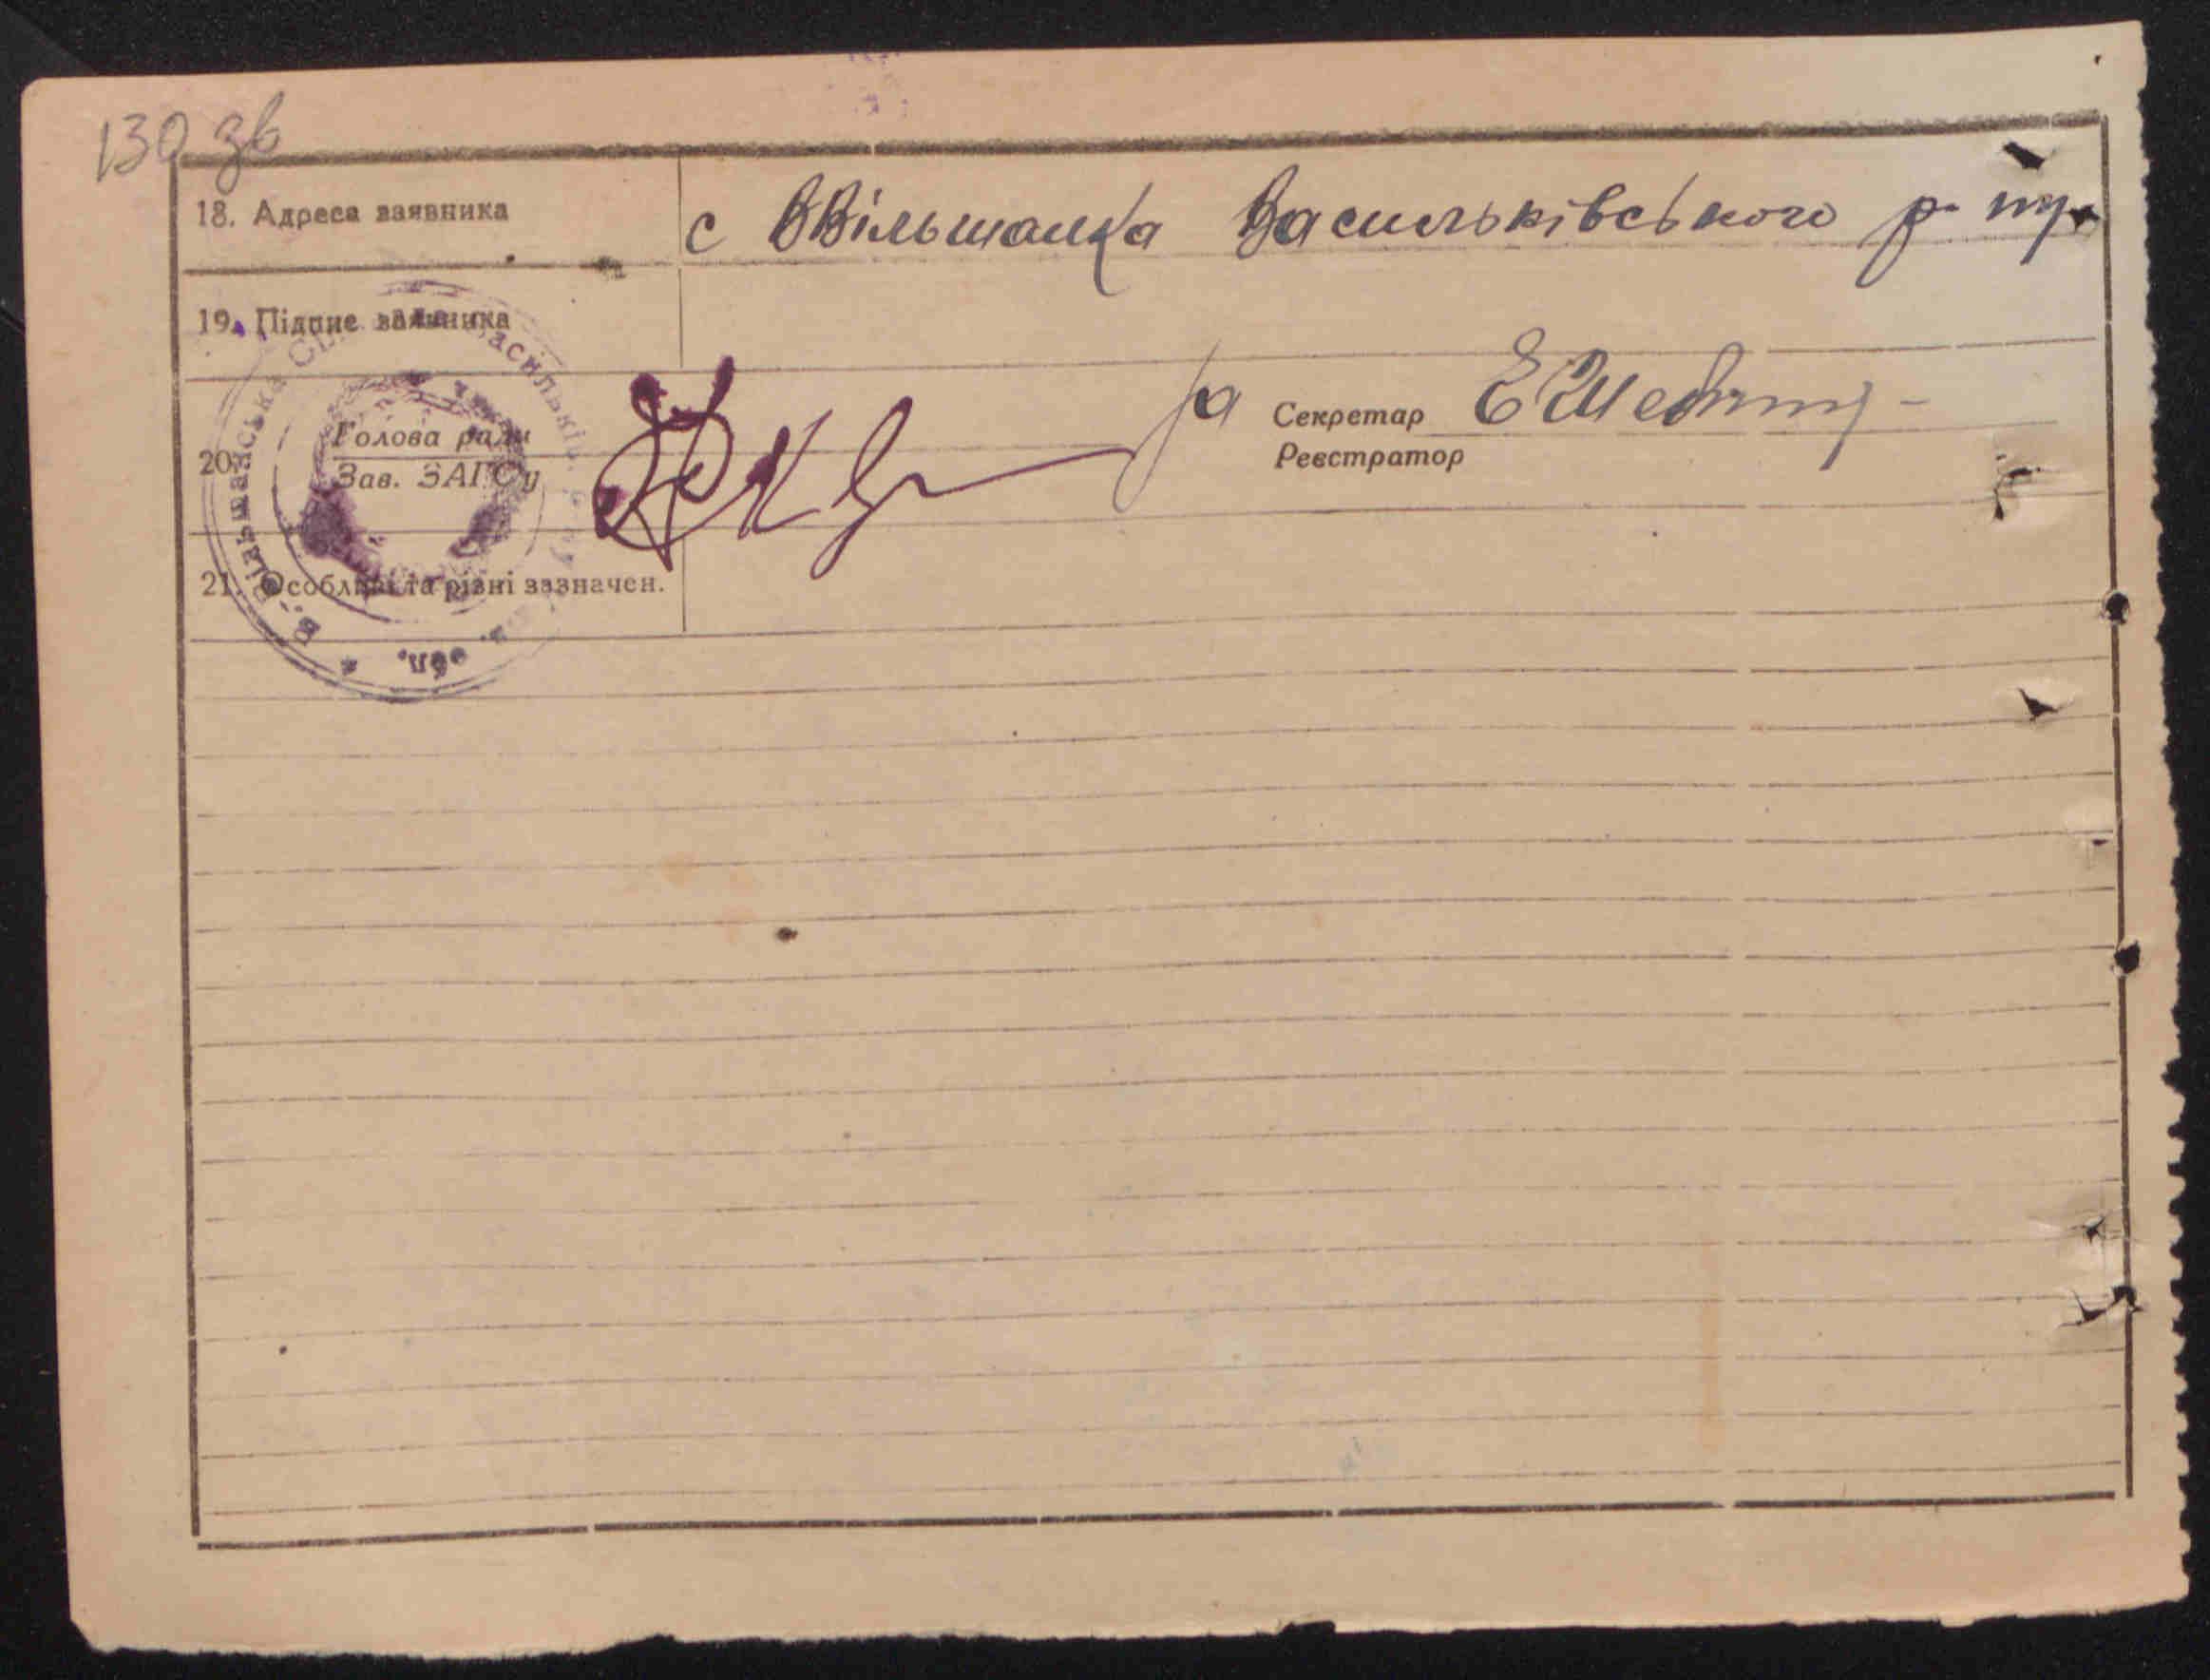 130 зв
18. Адреса заявника с ВВільшанка Васильківського р-ну
19. Підпис заявника
20. Голова ради
Зав. ЗАГСу
Секретар
Реєстратор
21. Особливі та різні зазначен.
В.-Вільшанська обл.